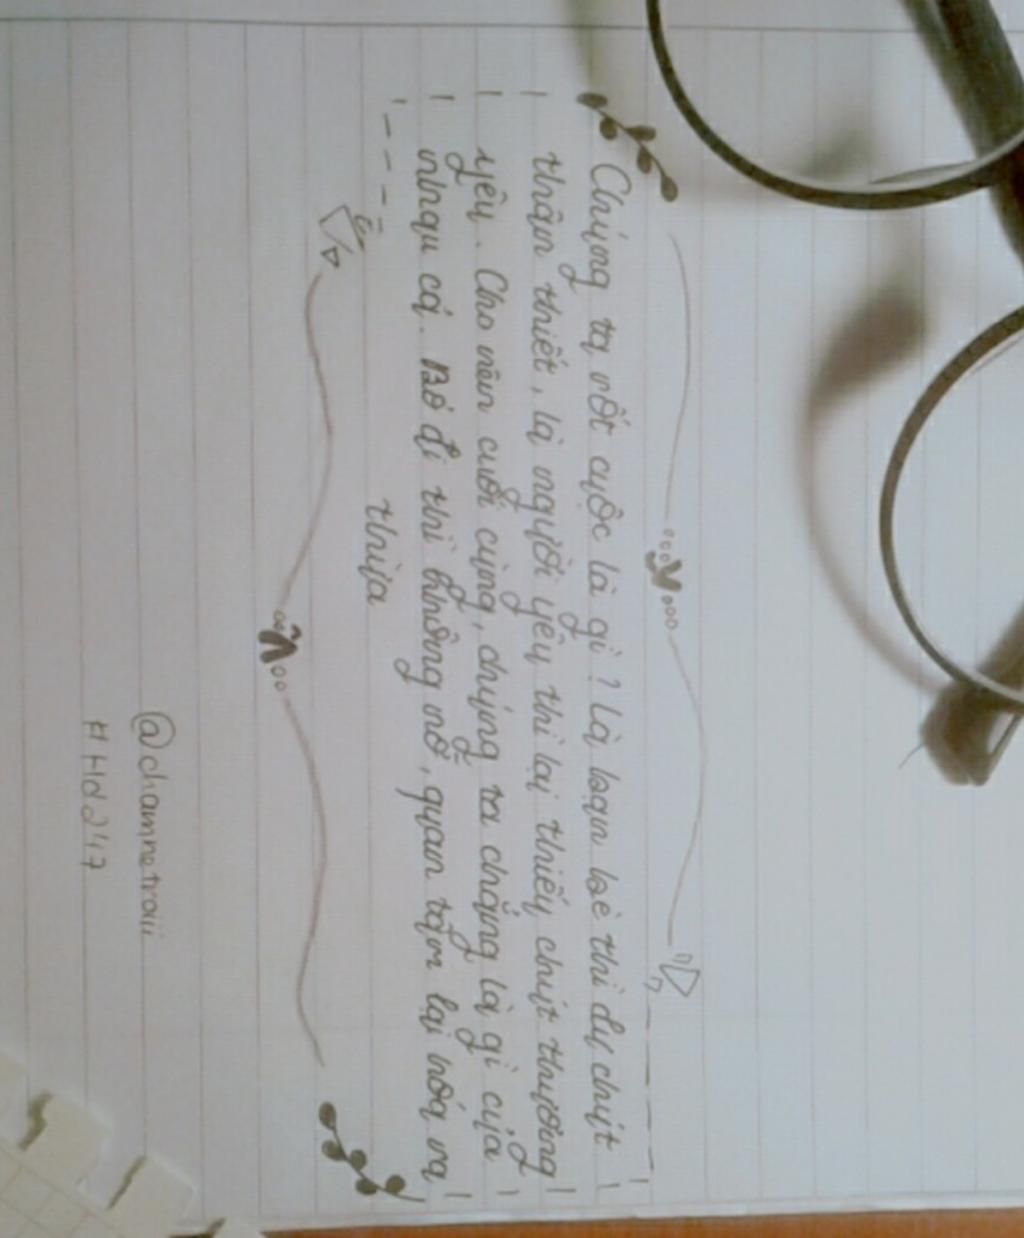 Chúng ta rốt cuộc là gì? Là bạn bè thì dư chút
thân thiết, là người yêu thì lại thiếu chút thương
yêu. Cho nên cuối cùng, chúng ta chẳng là gì của
nhau cả. Bỏ đi thì không nỡ, quan tâm lại hoá ra
thừa
@chamnetraiii
#Hd247